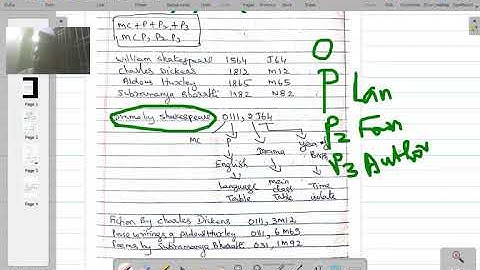 MC + P + P2, + P3
MC P, P2 P3
William Shakespeare 1564 J64
Charles Dickens 1812 M12
Aldous Huxley 1865 M65
Subramanya Bharathi 1182 N82
Drama by Shakespeare 0111, 2 J64
MC P Drama Year of Birth
English
Language Table main class Table Time isolate
Fiction By Charles Dickens 0111, 3M12
Prose writings of Aldous Huxley 0111, 6M65
Poems by Subramanya Bharathi 031, 1M92
O
P Lan
P2 Form
P3 Author
Page 1
Page 2
Page 3
Page 4